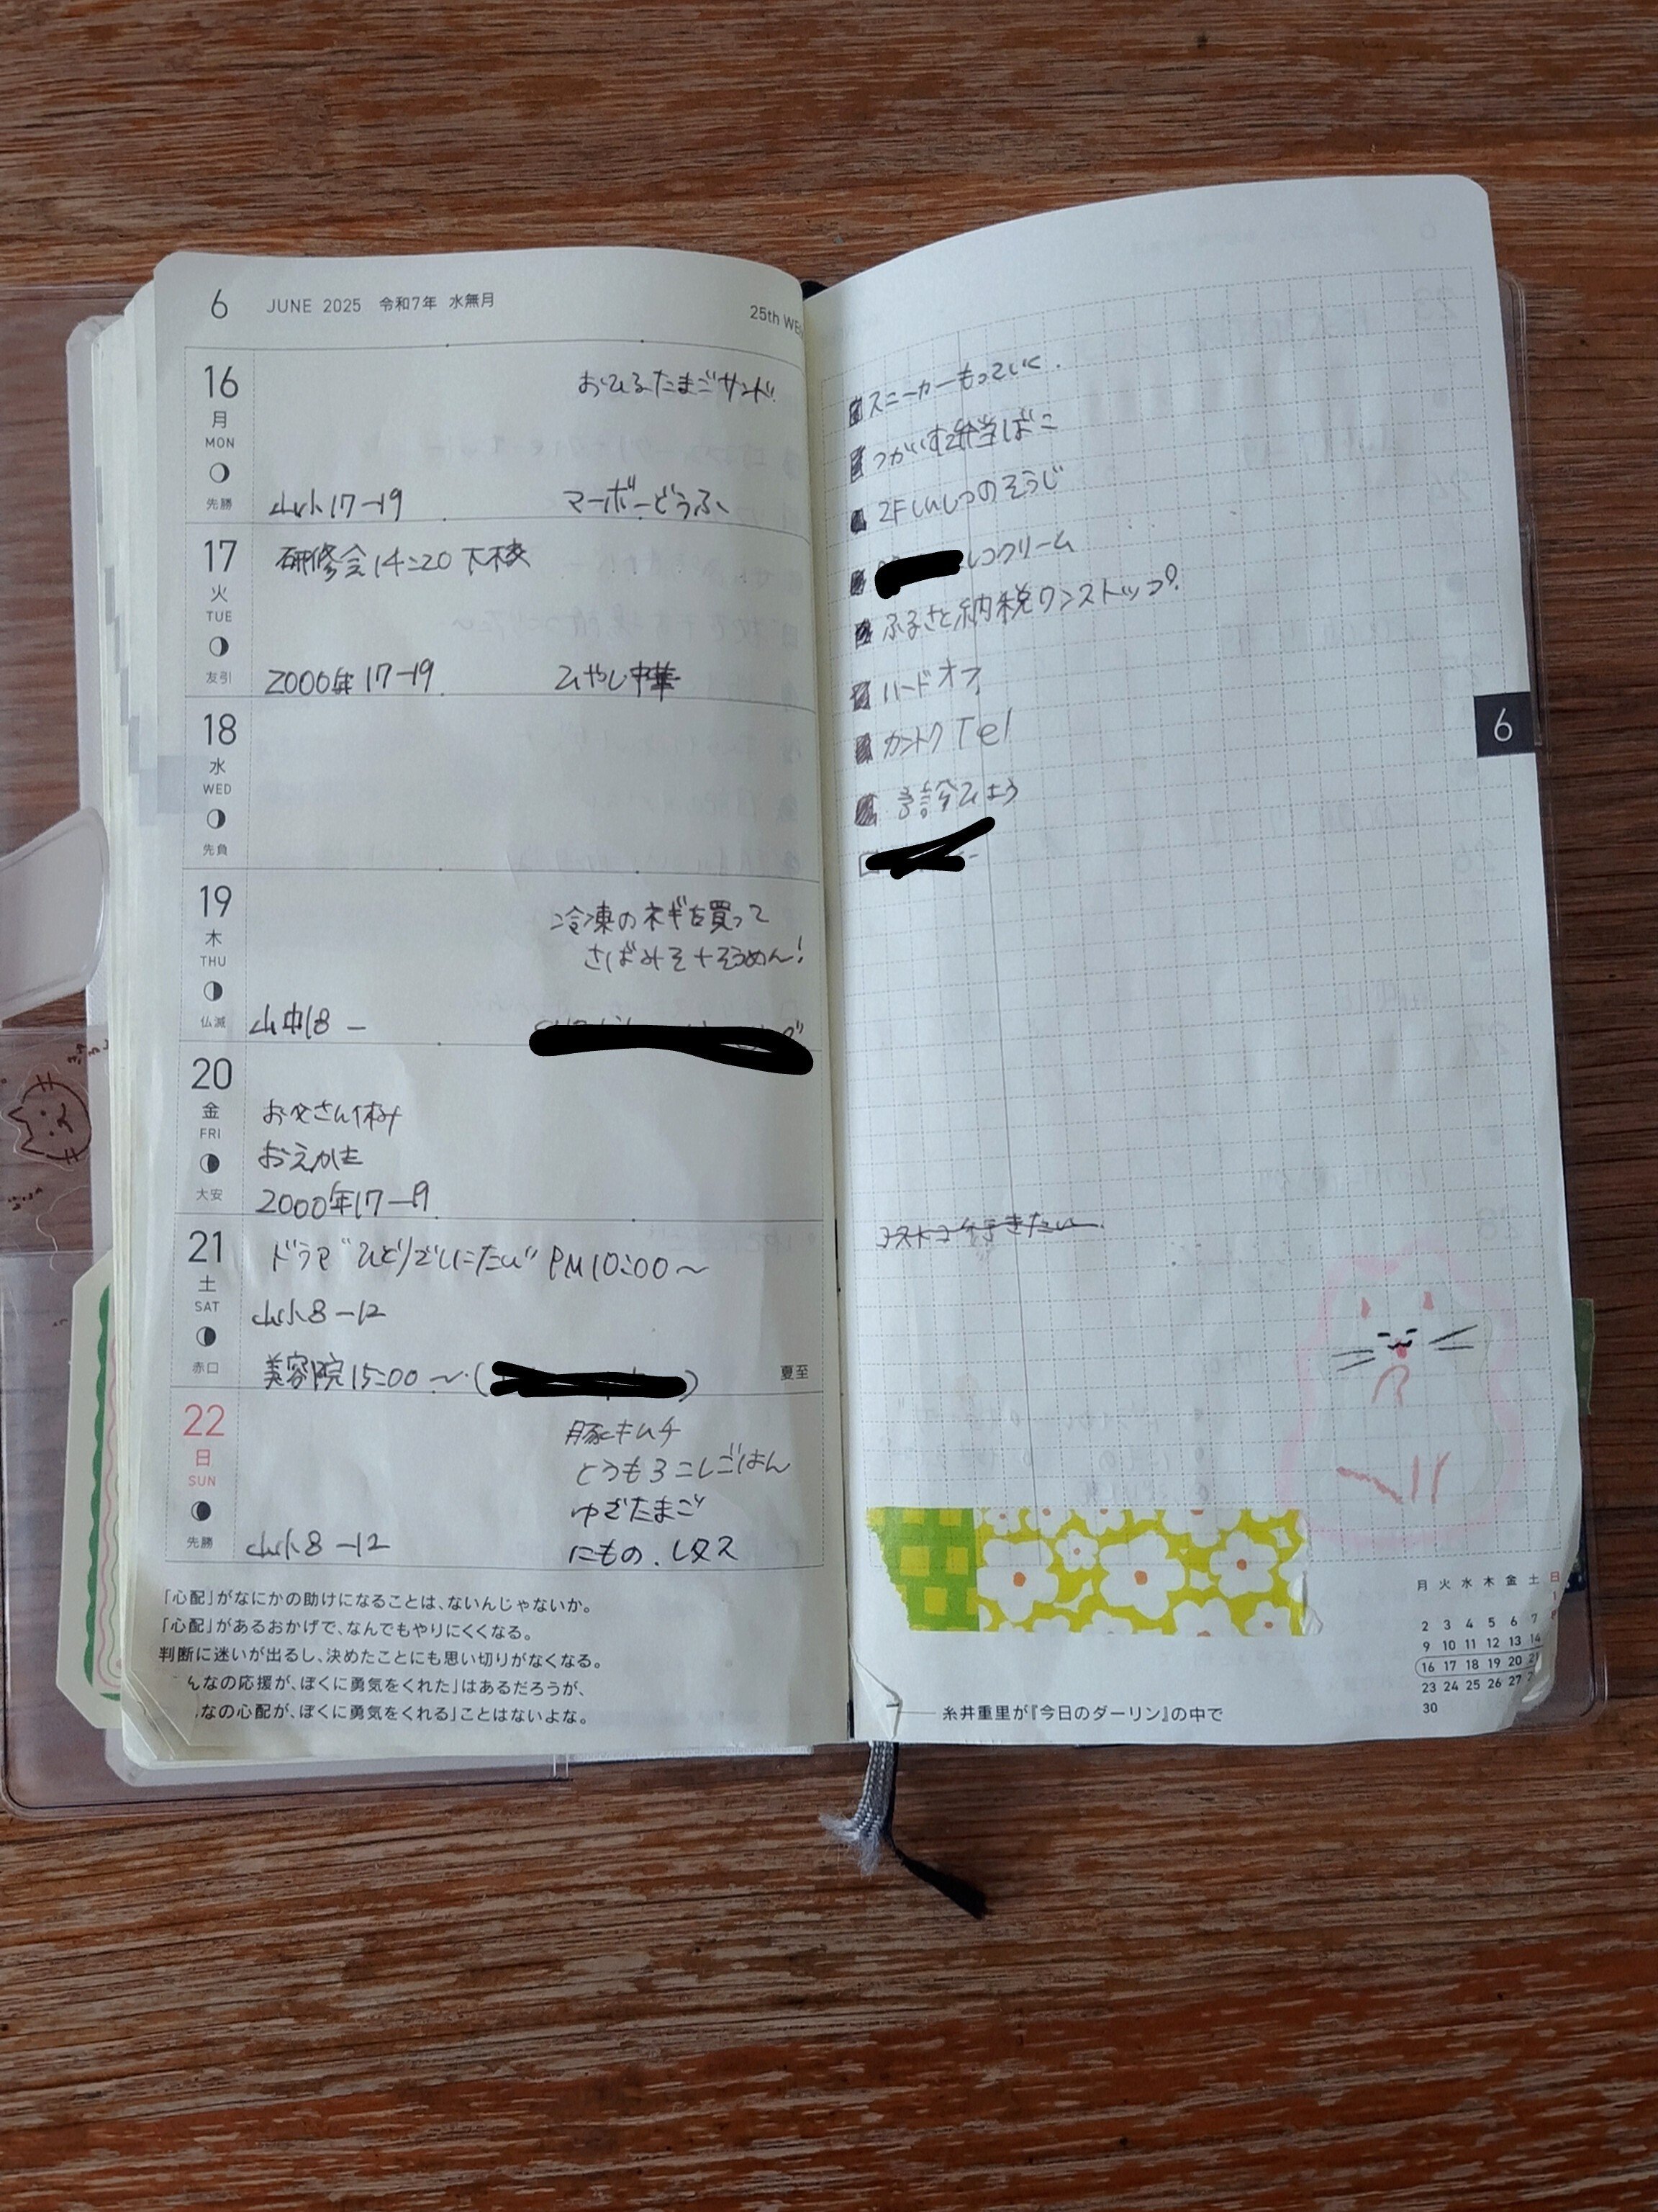 6 JUNE 2025 令和7年 水無月
25th WE
16
月
MON
先勝
おひるたまごサンド
山小17-19 マーボーどうふ
17
火
TUE
友引
研修会14:20下校
2000年17-19 ひやし中華
18
水
WED
先負
19
木
THU
仏滅
冷凍のネギを買って
さばみそ+そうめん!
山中18-
20
金
FRI
大安
お父さん休み
おえかき
2000年17-19
21
土
SAT
赤口
ドラマ"ひとりでしにたい" PM10:00~
山小8-12
美容院15:00~(
夏至
22
日
SUN
先勝
豚キムチ
とうもろこしごはん
ゆでたまご
山小8-12 にもの、レタス
「心配」がなにかの助けになることは、ないんじゃないか。
「心配」があるおかげで、なんでもやりにくくなる。
判断に迷いが出るし、決めたことにも思い切りがなくなる。
んなの応援が、ぼくに勇気をくれた」はあるだろうが、
なの心配が、ぼくに勇気をくれる」ことはないよな。
スニーカーもっていく.
弁当ばこ
2Fしんしつのそうじ
クリーム
ふるさと納税ワンストップ?
ハードオフ
カントク Tel
ひよう
6
コストコ行きたい
月 火 水 木 金 土 日
1
2 3 4 5 6 7 8
9 10 11 12 13 14
16 17 18 19 20 2
23 24 25 26 27 2
30
糸井重里が『今日のダーリン』の中で